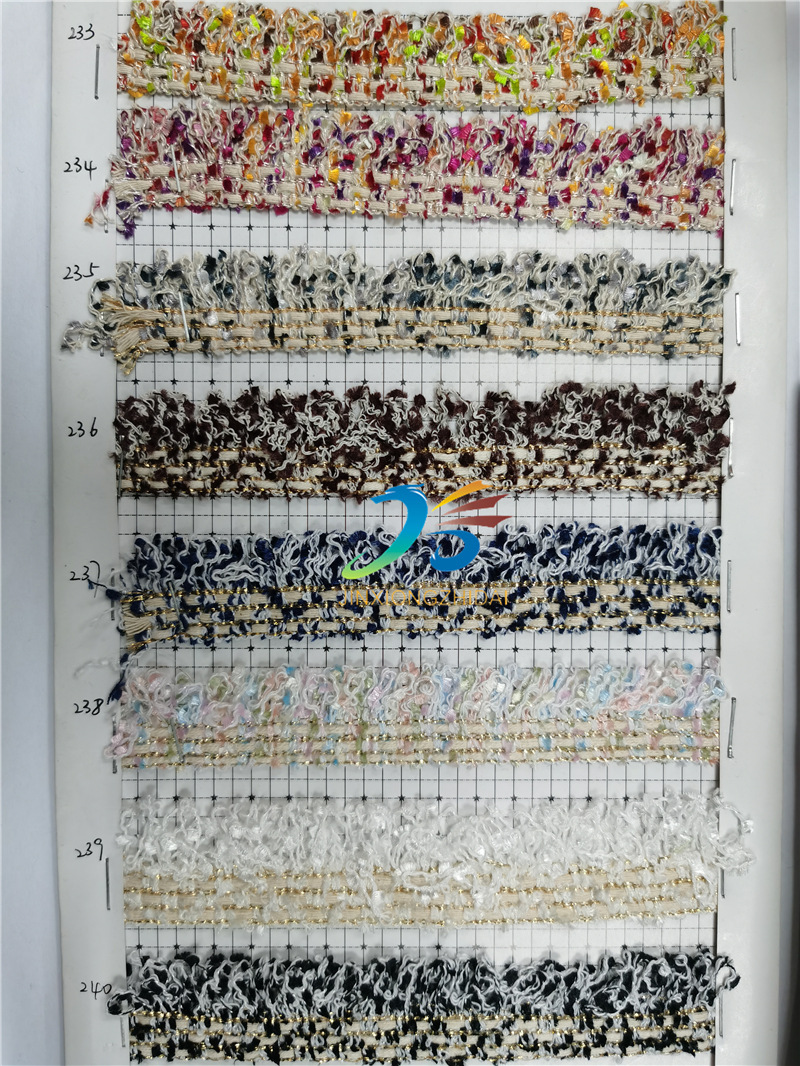 233
234
235
236
237
JINXIONGZHIDAI
238
239
240